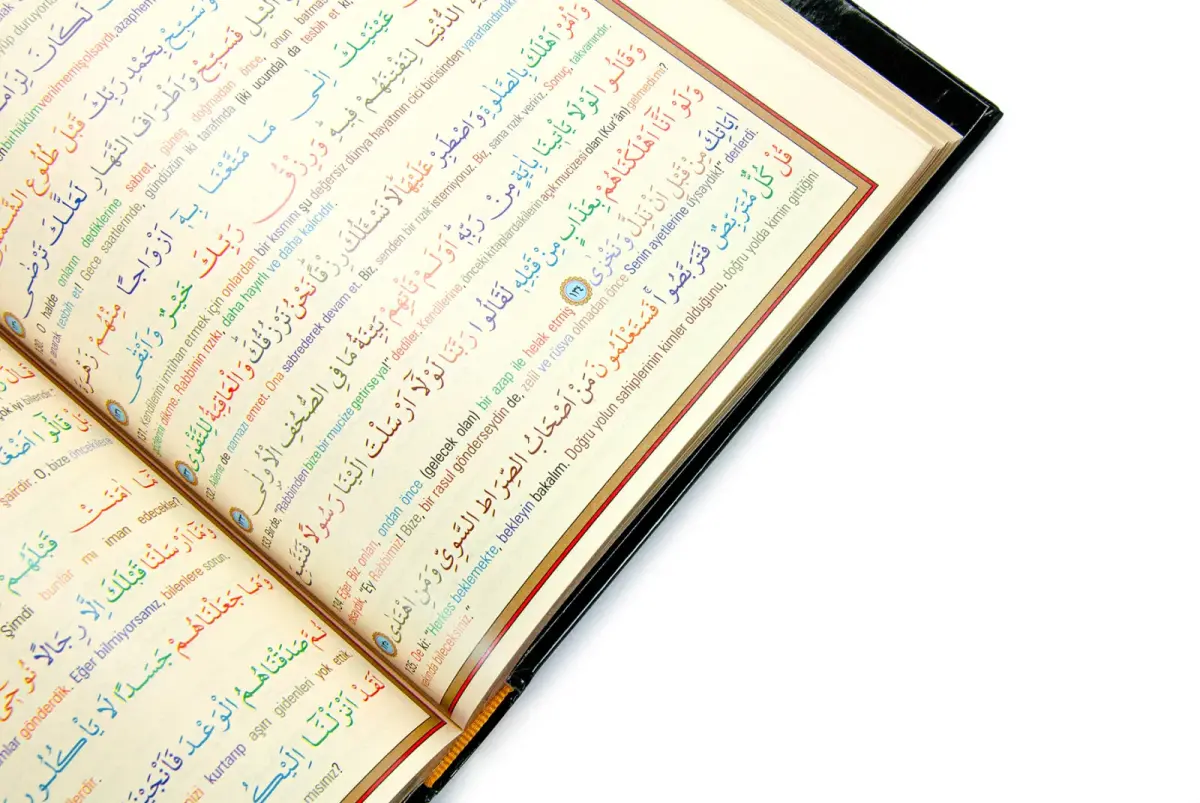 لَكَانَ لِزَامًا
bir hüküm verilmemiş olsaydı, azap hem
وَسَبِّحْ بِحَمْدِ رَبِّكَ قَبْلَ طُلُوعِ
فَسَبِّحْ وَاَطْرَافَ النَّهَارِ لَعَلَّكَ تَرْضٰى
130. O halde onların dediklerine sabret, güneş doğmadan önce, onun
anarak tesbih et! Gece saatlerinde, gündüzün iki tarafında (iki ucunda) da tesbih et ki,
عَيْنَيْكَ اِلٰى مَا مَتَّعْنَا بِهٖٓ اَزْوَاجًا مِنْهُمْ
الدُّنْيَا لِنَفْتِنَهُمْ فٖيهِ وَرِزْقُ رَبِّكَ خَيْرٌ وَاَبْقٰى
131. Kendilerini imtihan etmek için onlardan bir kısmını, şu değersiz dünya hayatının cici bicisinden yararlandırdık
dikme. Rabbinin rızkı, daha hayırlı ve daha kalıcıdır.
وَأْمُرْ اَهْلَكَ بِالصَّلٰوةِ وَاصْطَبِرْ عَلَيْهَا لَا نَسْـَٔلُكَ رِزْقًا نَحْنُ نَرْزُقُكَ وَالْعَاقِبَةُ لِلتَّقْوٰى
132. Ailene de namazı emret. Ona sabrederek devam et. Biz, senden bir rızık istemiyoruz. Biz, sana rızık veririz. Sonuç, takvanındır.
وَقَالُوا لَوْلَا يَأْتٖينَا بِاٰيَةٍ مِنْ رَبِّهٖ اَوَلَمْ تَأْتِهِمْ بَيِّنَةُ مَا فِي الصُّحُفِ الْاُولٰى
133. Bir de, "Rabbinden bize bir mucize getirseya!" dediler. Kendilerine, önceki kitaplardakilerin açık mucizesi olan (Kur'ân) gelmedi mi?
وَلَوْ اَنَّٓا اَهْلَكْنَاهُمْ بِعَذَابٍ مِنْ قَبْلِهٖ لَقَالُوا رَبَّنَا لَوْلَٓا اَرْسَلْتَ اِلَيْنَا رَسُولًا فَنَتَّبِعَ
اٰيَاتِكَ مِنْ قَبْلِ اَنْ نَذِلَّ وَنَخْزٰى ١٣٤
134. Eğer Biz onları, ondan önce (gelecek olan) bir azap ile helak etmiş
olsaydık, "Ey Rabbimiz! Bize, bir rasul gönderseydin de, zelil ve rüsva olmadan önce Senin ayetlerine uysaydık!" derlerdi.
قُلْ كُلٌّ مُتَرَبِّصٌ فَتَرَبَّصُوا فَسَتَعْلَمُونَ مَنْ اَصْحَابُ الصِّرَاطِ السَّوِيِّ وَمَنِ اهْتَدٰى
135. De ki: "Herkes beklemekte, bekleyin bakalım. Doğru yolun sahiplerinin kimler olduğunu, doğru yolda kimin gittiğini
yakında bileceksiniz."
yok iyi bilendir."
بَلْ قَالُٓوا
şairdir. O, bize öncekilere
مَٓا اٰمَنَتْ قَبْلَهُمْ
Şimdi bunlar mı iman edecekler?
وَمَٓا اَرْسَلْنَا قَبْلَكَ اِلَّا رِجَالًا نُوحٖٓي
gönderdik. Eğer bilmiyorsanız, bilenlere sorun.
وَمَا جَعَلْنَاهُمْ جَسَدًا لَا يَأْكُلُونَ
ثُمَّ صَدَقْنَاهُمُ الْوَعْدَ
kurtarıp aşırı gidenleri yok ettik.
لَقَدْ اَنْزَلْنَٓا اِلَيْكُمْ
mısınız?